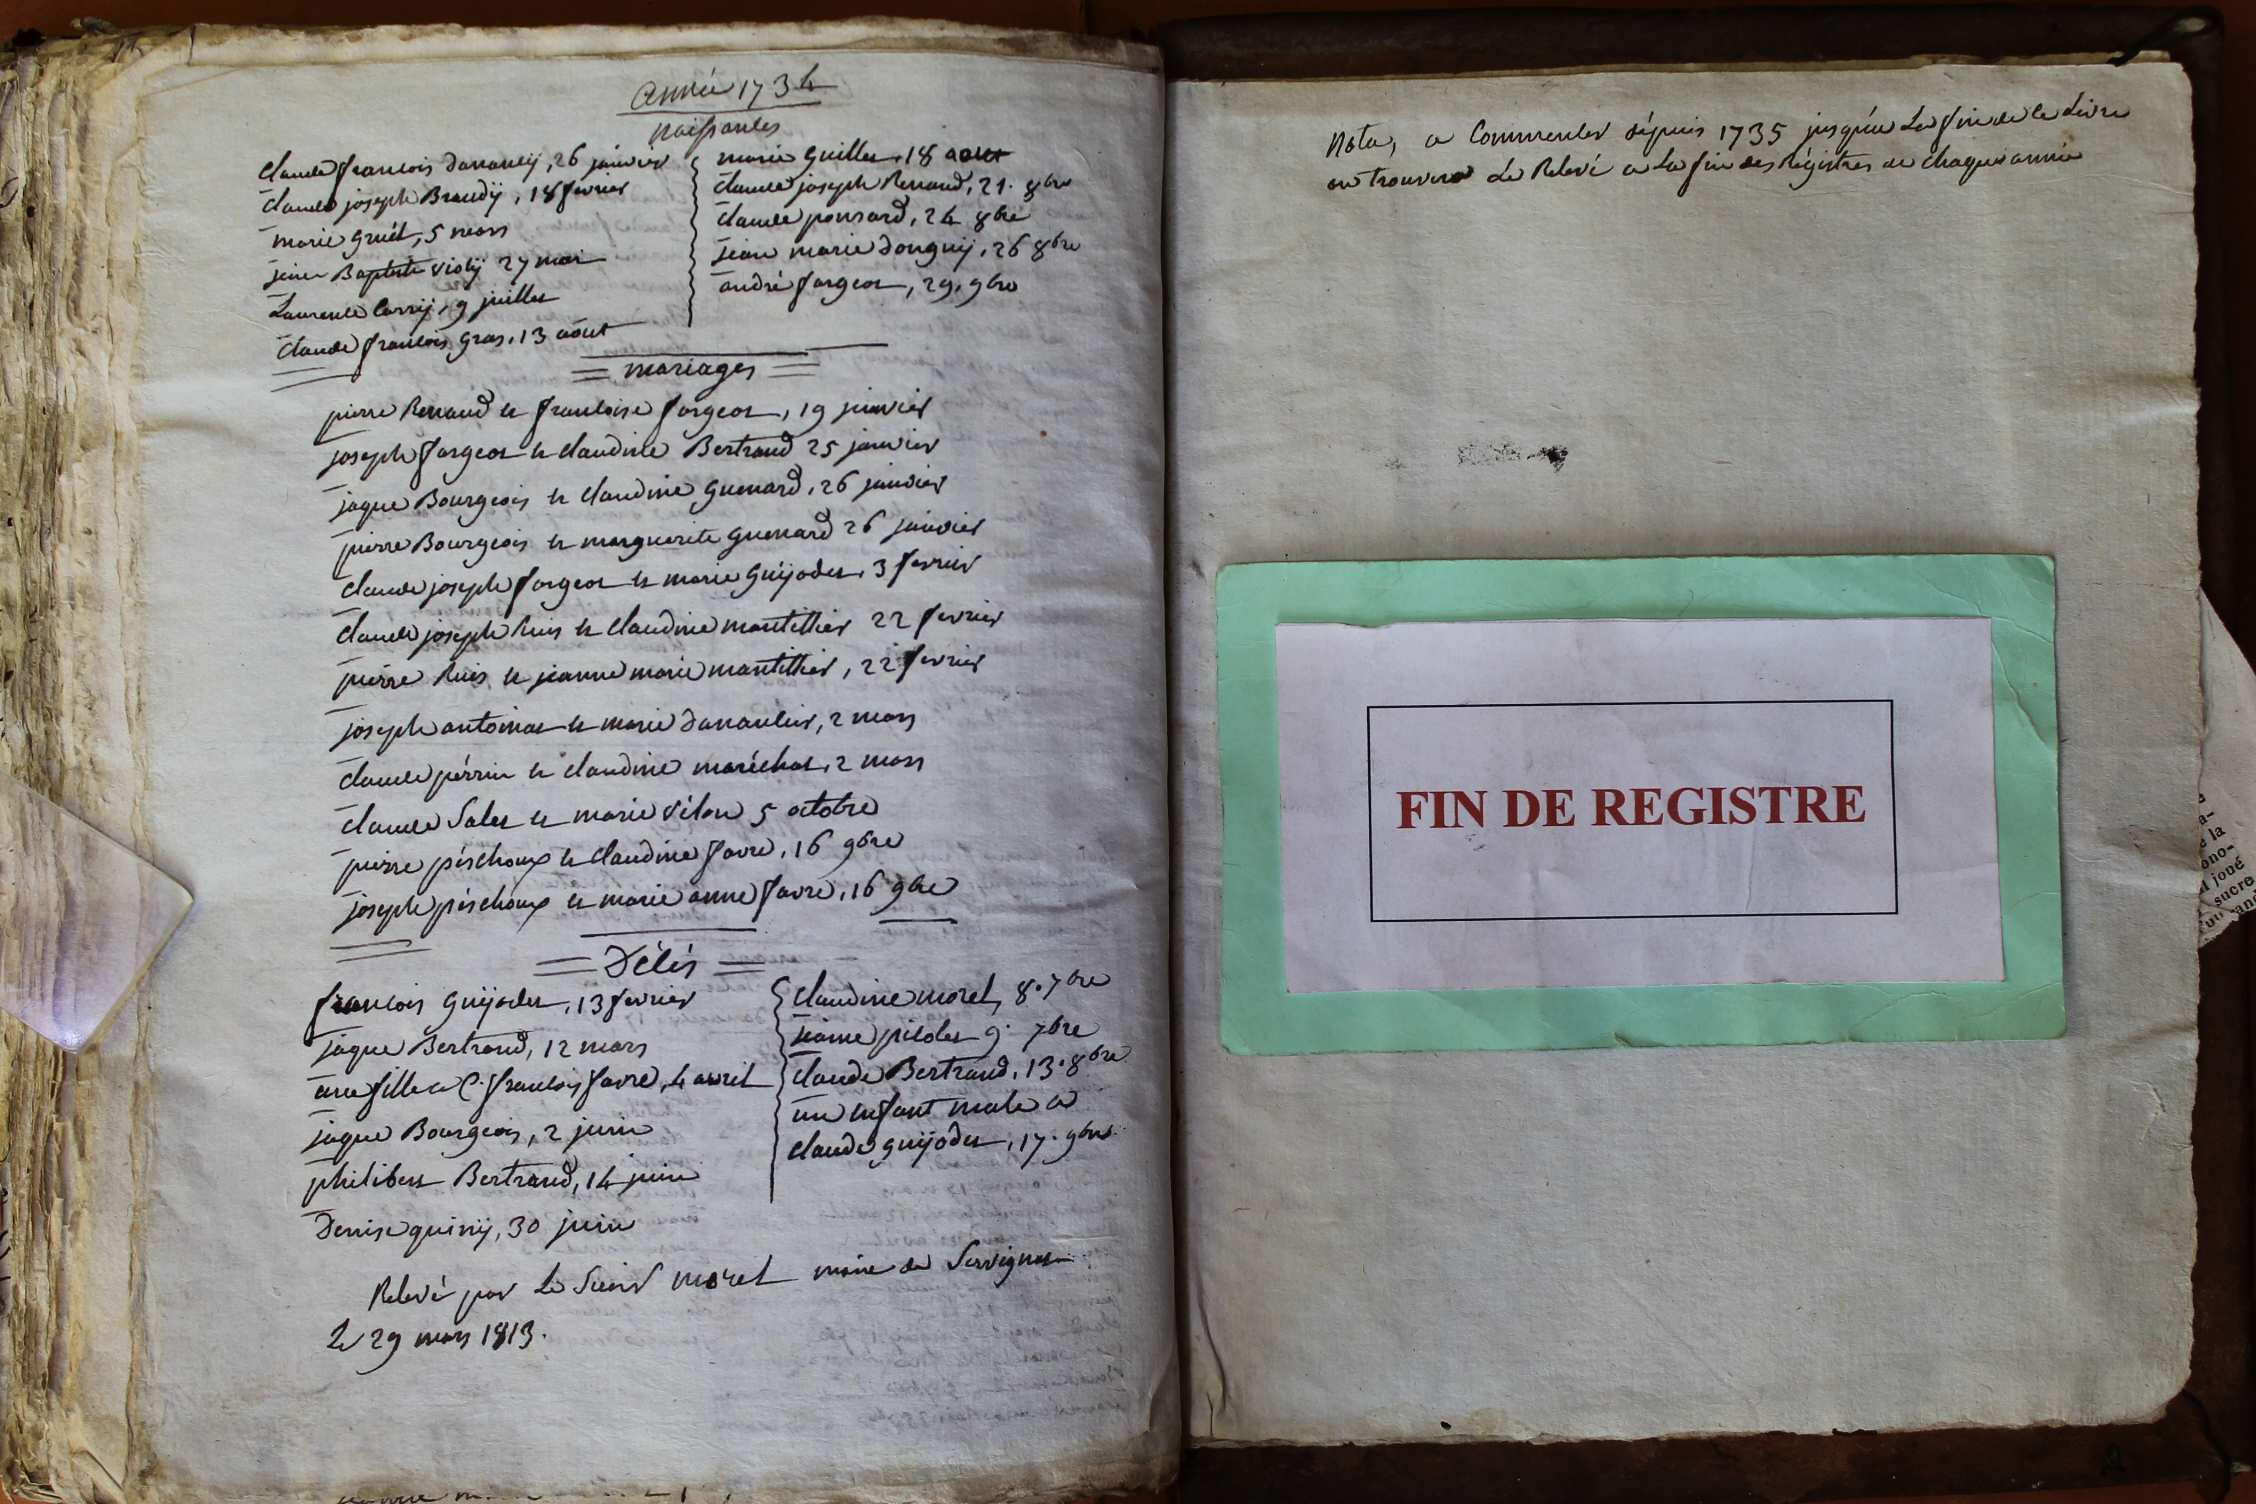 année 1734
naissances
claude francois dananey, 26 janvier
claude joseph Brandÿ, 18 fevrier
marie gruét, 5 mars
jean Baptiste violÿ 27 mai
Laurence Carrÿ, 9 juillet
claude francois gras, 13 aout
marie guillet, 18 aout
claude joseph Renaud, 21. 8bre
claude ponsard, 24 8bre
jean marie donguÿ, 26 8bre
andré forgeot, 29. 9bre
mariages
pierre Renaud et francoise forgeot, 19 janvier
joseph forgeot et claudine Bertrand 25 janvier
jaque Bourgeois et claudine guenard, 26 janvier
pierre Bourgeois et marguerite guenard 26 janvier
claude joseph forgeot et marie guÿodet, 3 fevrier
claude joseph Ruis et claudine mantillier 22 fevrier
pierre Ruis et jeanne marie mantillier, 22 fevrier
joseph antoinat et marie danancier, 2 mars
claude pérrin et claudine maréchal, 2 mars
claude Salet et marie vélon 5 octobre
pierre péschoux et claudine favre, 16 9bre
joseph péschoux et marie anne favre, 16 9bre
Décés
francois guÿodet, 13 fevrier
jaque Bertrand, 12 mars
une fille a C. francois favre, 4 avril
jaque Bourgeois, 2 juin
philibert Bertrand, 14 juin
Denise quinÿ, 30 juin
claudine morel, 8. 7bre
jeanne pidolet 9. 7bre
claude Bertrand, 13. 8bre
un enfant male a
claude guÿodet, 17. 9bre
Relevé par Le Sieur morel maire de Servignat
Le 29 mars 1813.
Nota, a Commencer dépuis 1735 jusqu'a La fin de ce Livre
on trouvera Le Relevé a La fin des Régistres de chaque année
FIN DE REGISTRE
la
ono-
joué
sucre